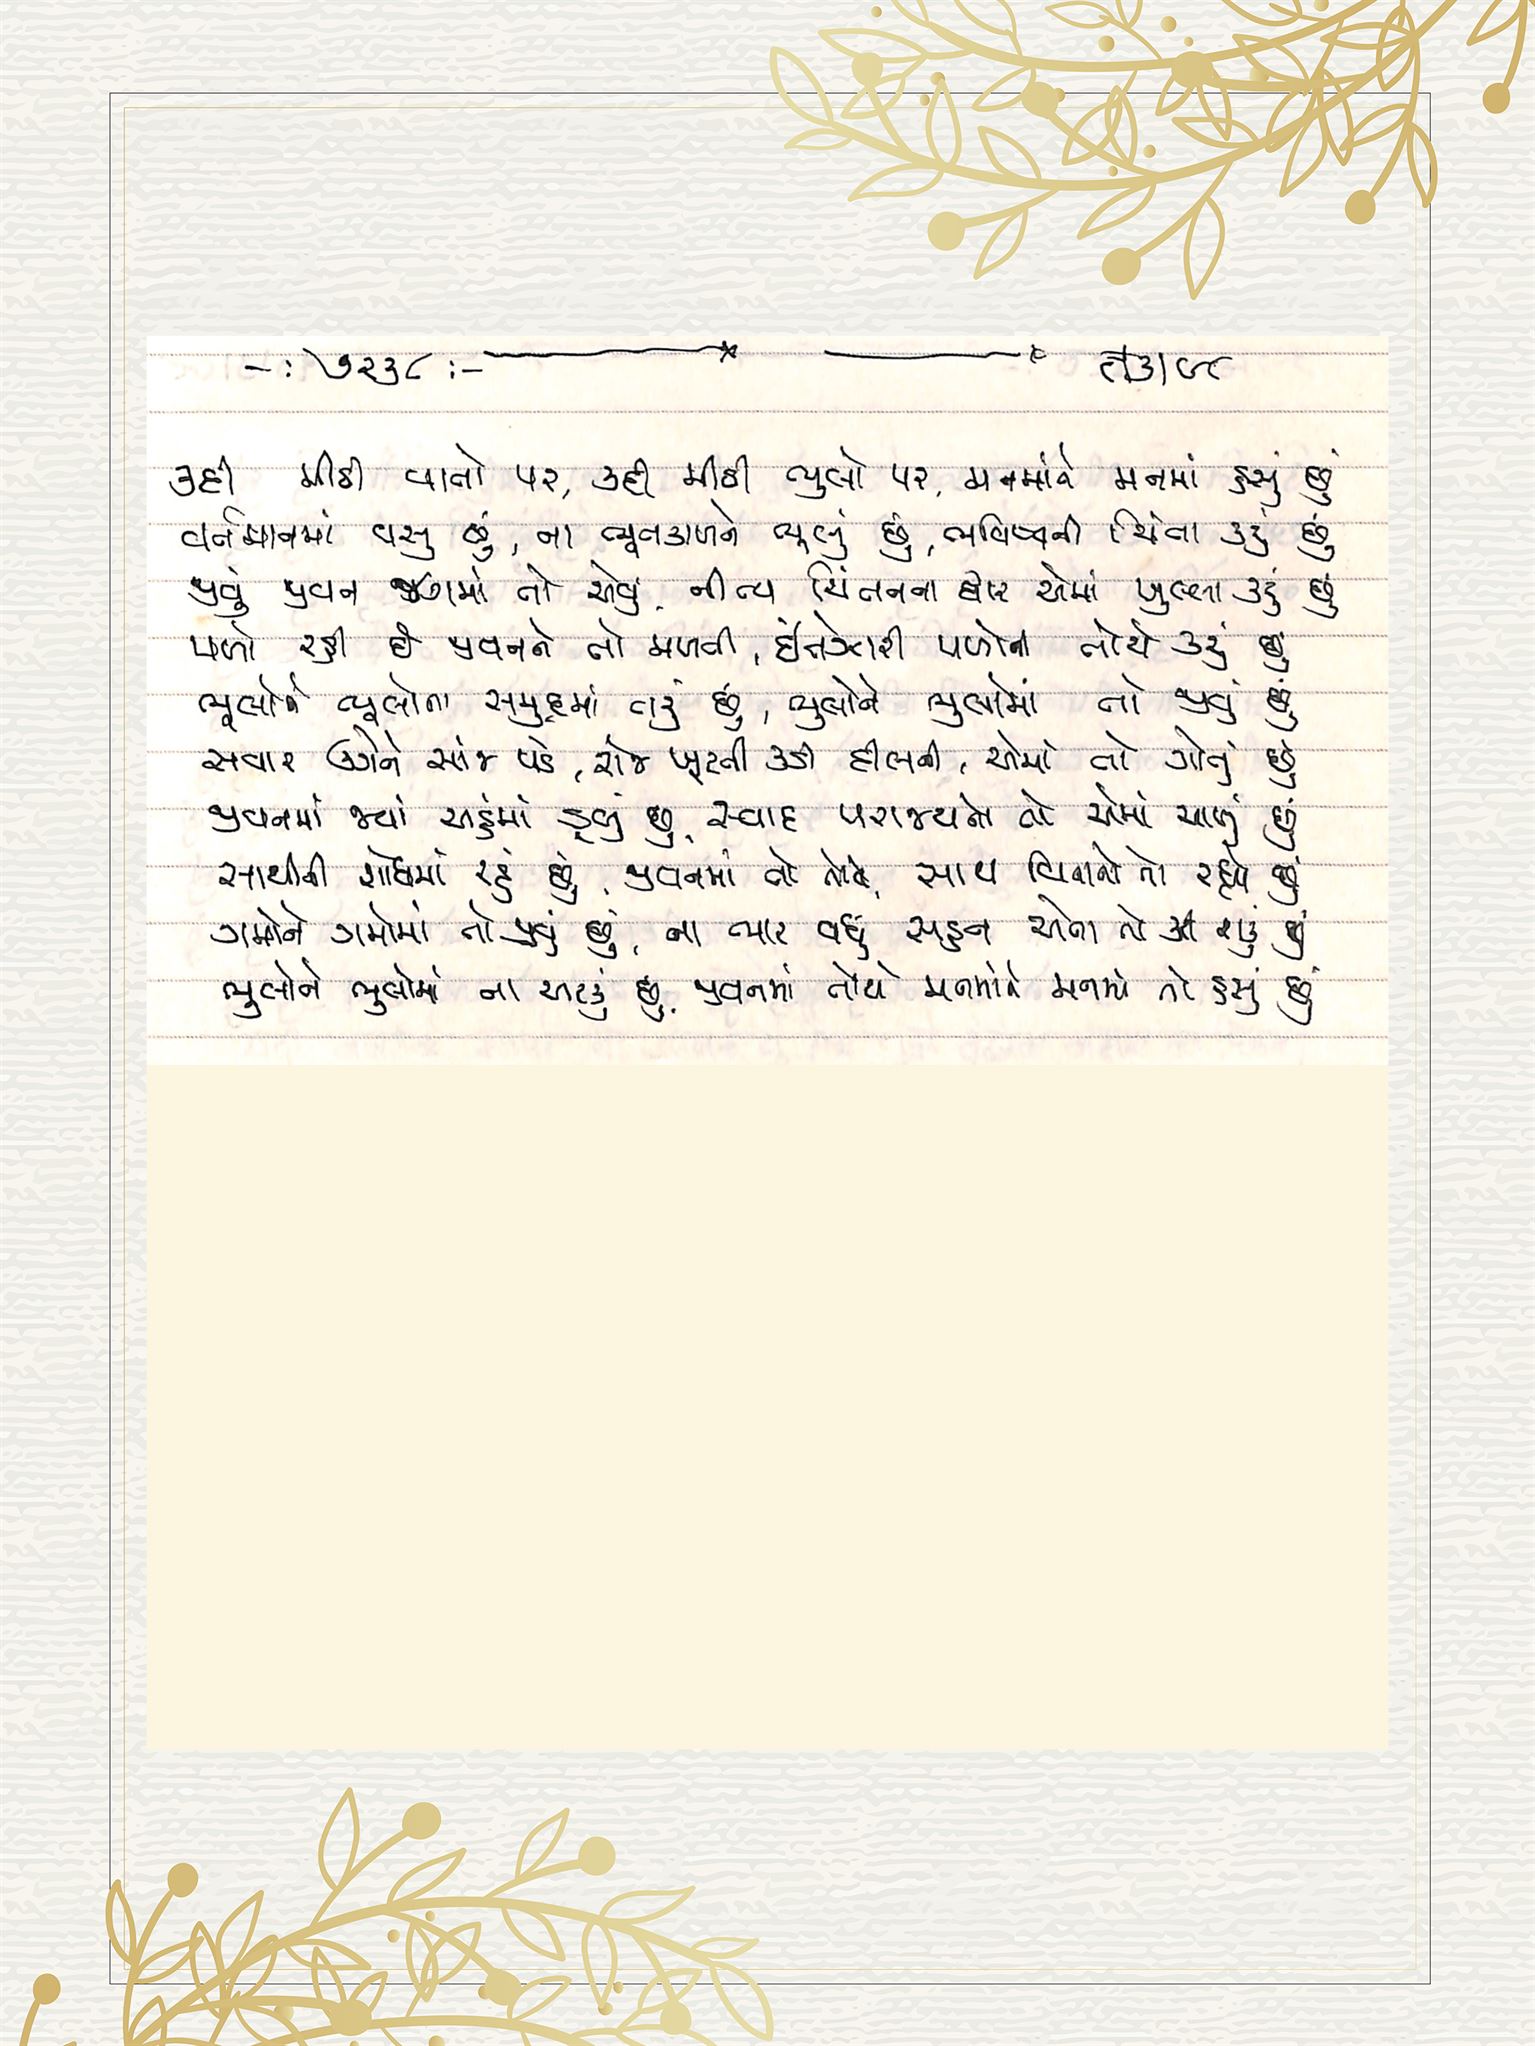 -: ૭૨૩૮ :-
કદી મીઠી વાતો પર, કદી મીઠી ભુલો પર, મનમાંને મનમાં હસું છું
વર્તમાનમાં વસુ છું, ના ભૂતકાળને ભૂલું છું, ભવિષ્યની ચિંતા કરું છું
જીવું જીવન જગમાં તો એવું, નીત્ય ચિંતનના દ્વાર એમાં ખુલ્લા કરું છું
પળો રહી છે જીવનને તો મળતી, ઈંતેઝારી પળોની તોયે કરું છું
ભૂલોને ભૂલોના સમુદ્રમાં તરું છું, ભુલોને ભુલોમાં તો જીવું છું
સવાર ઉગેને સાંજ પડે, રોજ ખૂટતી કડી દીલની, એમાં તો ગોતું છું
જીવનમાં જ્યાં અહંમાં ડૂબું છું, સ્વાદ પરાજ્યનો તો એમાં ચાખું છું
સાથીની શોધમાં રહું છું, જીવનમાં તો તોયે, સાથ વિનાનો તો રહ્યો છું
ગમોને ગમોમાં તો જીવું છું, ના ભાર વધુ સહન એના તો કરી શકું છું
ભુલોને ભુલોમાં ના અટકું છું, જીવનમાં તોયે મનમાંને મનમાં તો હસું છું